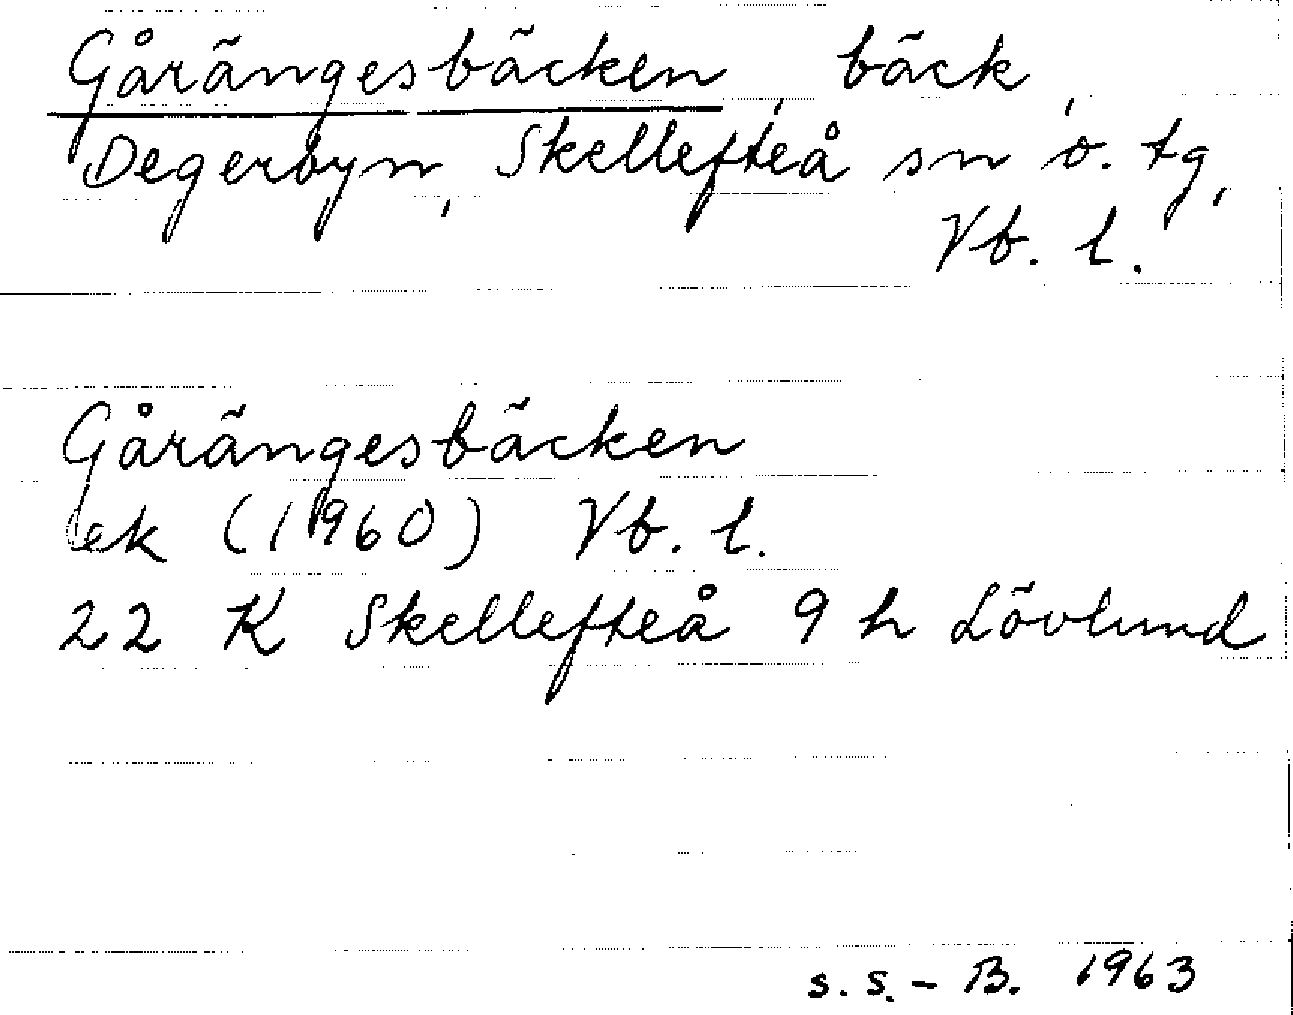 Gårängesbäcken, bäck,
Degerbyn, Skellefteå sn o. tg,
Vb. l.
Gårängesbäcken
ek (1960) Vb. l.
22 K Skellefteå 9 h Lövlund
s. s. - B. 1963